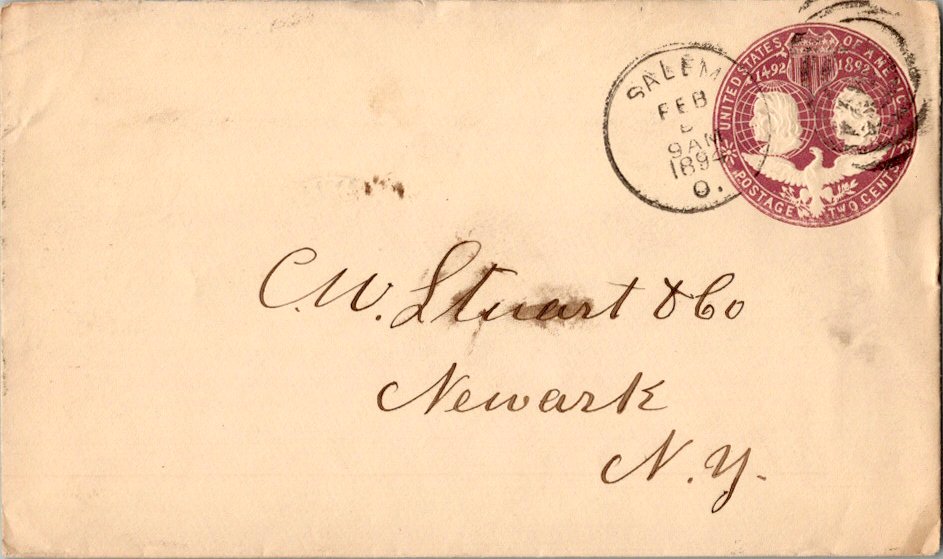 SALEM
FEB
9AM
189
O.
UNITED STATES OF AMERICA
1492 1892
POSTAGE TWO CENTS
C.W. Stuart & Co
Newark
N.Y.